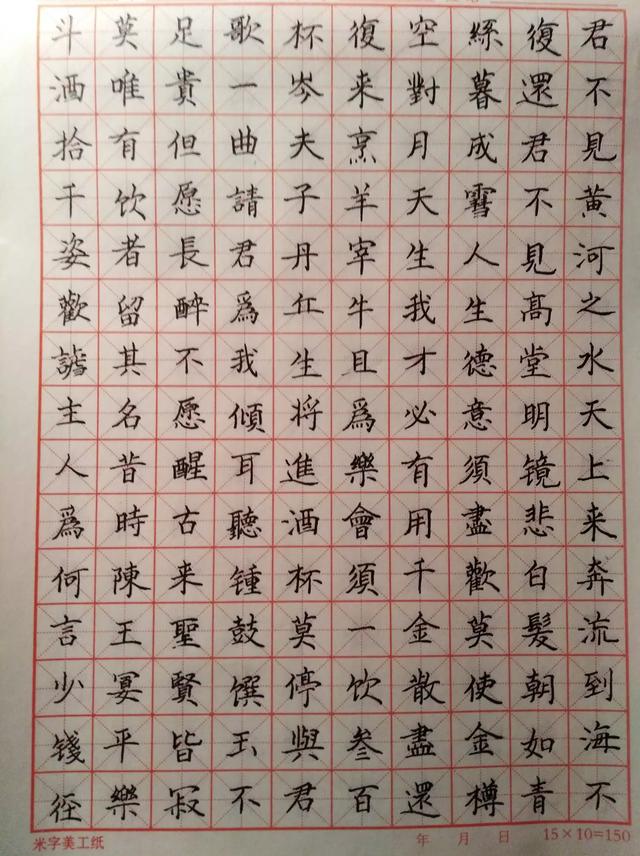 君不見黃河之水天上来奔流到海不
復還君不見高堂明镜悲白髮朝如青
絲暮成雪人生德意須盡歡莫使金樽
空對月天生我才必有用千金散盡還
復来烹羊宰牛且爲樂會須一饮叁百
杯岑夫子丹丘生将進酒杯莫停與君
歌一曲請君爲我傾耳聽锺鼓馔玉不
足貴但愿長醉不愿醒古来聖賢皆寂
莫唯有饮者留其名昔時陳王宴平樂
斗酒拾千姿歡謔主人爲何言少錢径
米字美工纸 年 月 日 15×10=150